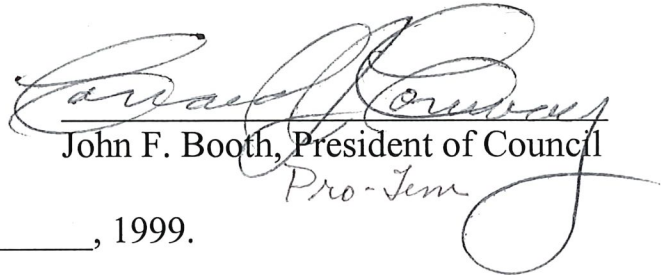 John F. Booth, President of Council
Pro-Tem
________, 1999.